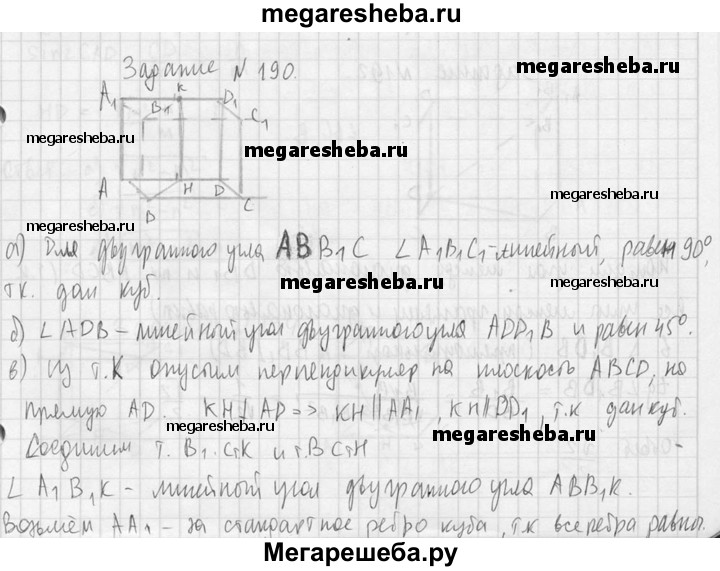 megaresheba.ru
Задание N 190.
A₁ K D₁
B₁ C₁
megaresheba.ru megaresheba.ru
megaresheba.ru
A H D
B C
megaresheba.ru
а) Для двугранного угла ABB₁C ∠A₁B₁C₁ - линейный, равен 90°,
т.к. дан куб.
megaresheba.ru
б) ∠ADB – линейный угол двугранного угла ADD₁B и равен 45°.
в) Из т.К опустим перпендикуляр на плоскость ABCD, на
прямую AD. KH⊥AD => KH∥AA₁, KH∥DD₁, т.к дан куб.
megaresheba.ru megaresheba.ru
Соединим т. B₁ с т.K и т.B с т.H
∠A₁B₁K – линейный угол двугранного угла ABB₁K.
Возьмём AA₁ – за стандартное ребро куба, т.к все ребра равны.
Мегарешеба.ру